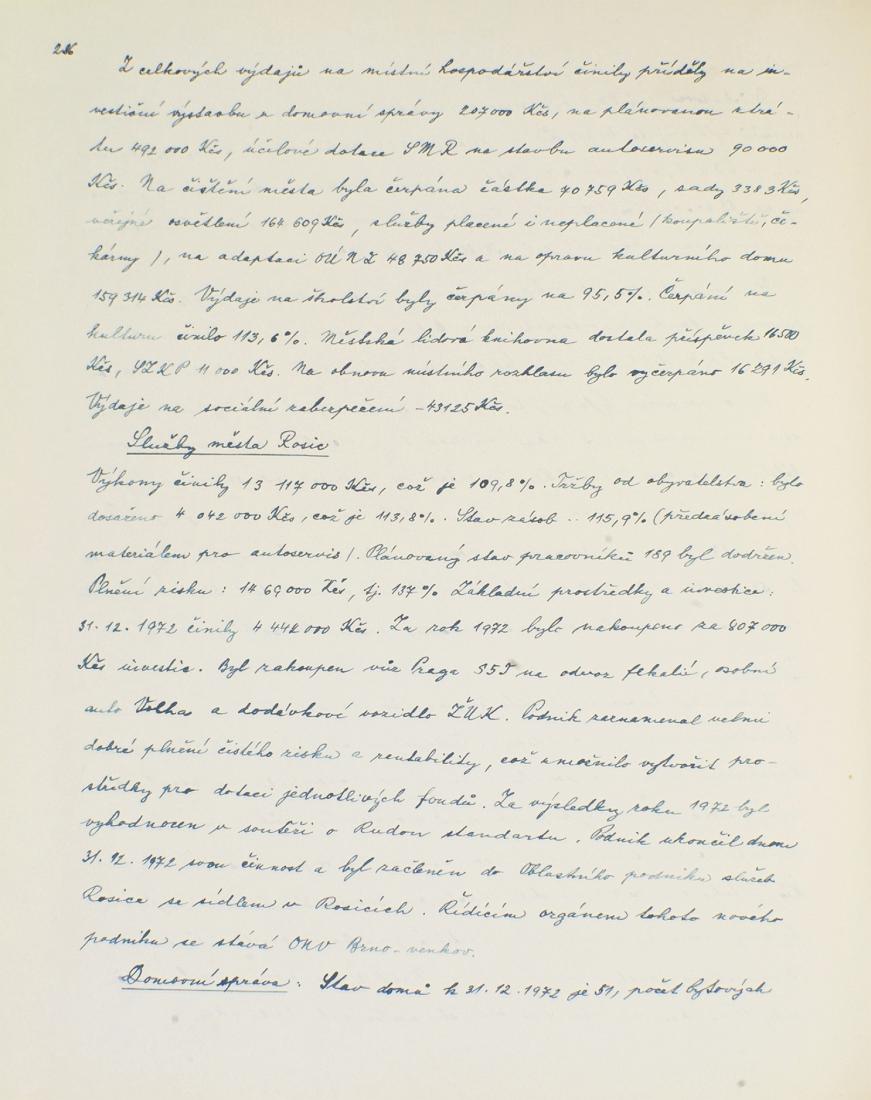 Z celkových výdajů na místní hospodářství činily příděly na in-
vestiční výstavbu a domovní správy 207 000 Kčs, na plánovanou ztrá-
tu 492 000 Kčs, účelové dotace SMR na stavbu autoservisu 90 000
Kčs. Na čištění města byla čerpána částka 70 759 Kčs, sady 3383 Kčs,
veřejné osvětlení 164 609 Kčs, služby placené i neplacené (koupaliště, če-
kárny), na adaptaci OÚNZ 48 750 Kčs a na opravu kulturního domu
159 314 Kčs. Výdaje na školství byly čerpány na 95,5%. Čerpání na
kulturu činilo 113,6%. Městská lidová knihovna dostala příspěvek 16 500
Kčs, SZKP 11 000 Kčs. Na obnovu místního rozhlasu bylo vyčerpáno 16 291 Kčs.
Výdaje na sociální zabezpečení - 43125 Kčs.
Služby města Rosic
Výkony činily 13 117 000 Kčs, což je 109,8%. Tržby od obyvatelstva: bylo
dosaženo 4 042 000 Kčs, což je 113,8%. Stav zásob .. 115,9% (předzásobení
materiálem pro autoservis). Plánovaný stav pracovníků 189 byl dodržen.
Plnění zisku: 1469 000 Kčs, tj. 137% Základní prostředky a investice:
31.12.1972 činily 4 442 000 Kčs. Za rok 1972 bylo nakoupeno za 807 000
Kčs investic. Byl zakoupen vůz Praga S5T na odvoz fekalií, osobní
auto Volha a dodávkové vozidlo ŽUK. Podnik zaznamenal velmi
dobré plnění čistého zisku a rentability, což umožnilo vytvořit pro-
středky pro dotaci jednotlivých fondů. Za výsledky roku 1972 byl
vyhodnocen v soutěži o Rudou standartu. Podnik ukončil dnem
31.12.1972 svou činnost a byl začleněn do Oblastního podniku služeb
Rosice se sídlem v Rosicích. Řídícím orgánem tohoto nového
podniku se stává ONV Brno-venkov.
Domovní správa: Stav domů k 31.12.1972 je 51, počet bytových